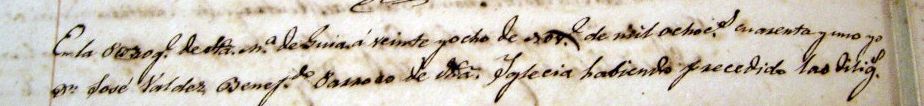 En la Parroq.l de Sta. M.a de Guia á veinte y ocho de Nov.e de mil ochoc.s cuarenta y uno yo
D.n José Valdez Benef.do Parroco de dha. Yglecia habiendo precedido las dilig.s